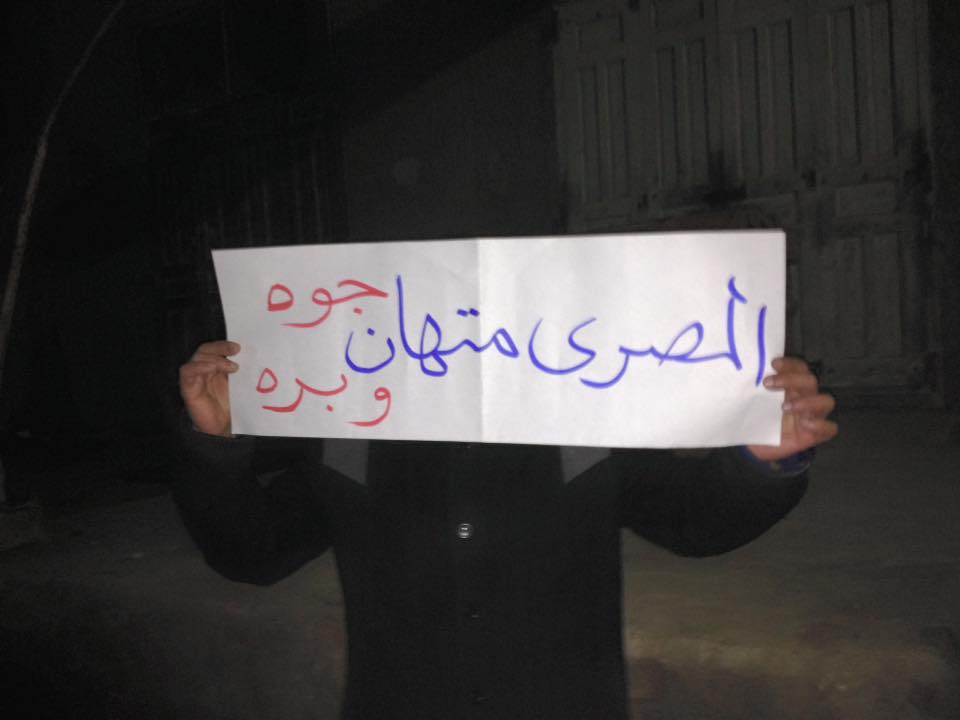 المصرى متهان
جوه
وبره